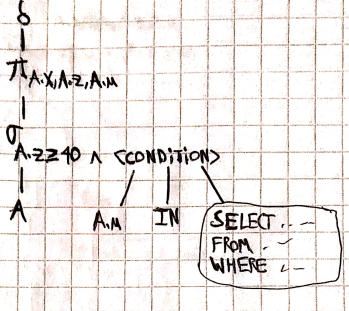 δ
π A.X,A.Z,A.M
σ A.Z≥40 ∧ <CONDITION>
A A.M IN
SELECT..-
FROM .-
WHERE .-